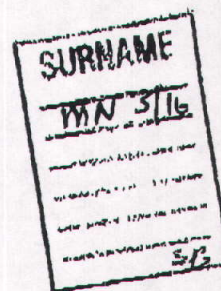 SURNAME
MN 3/16
SB